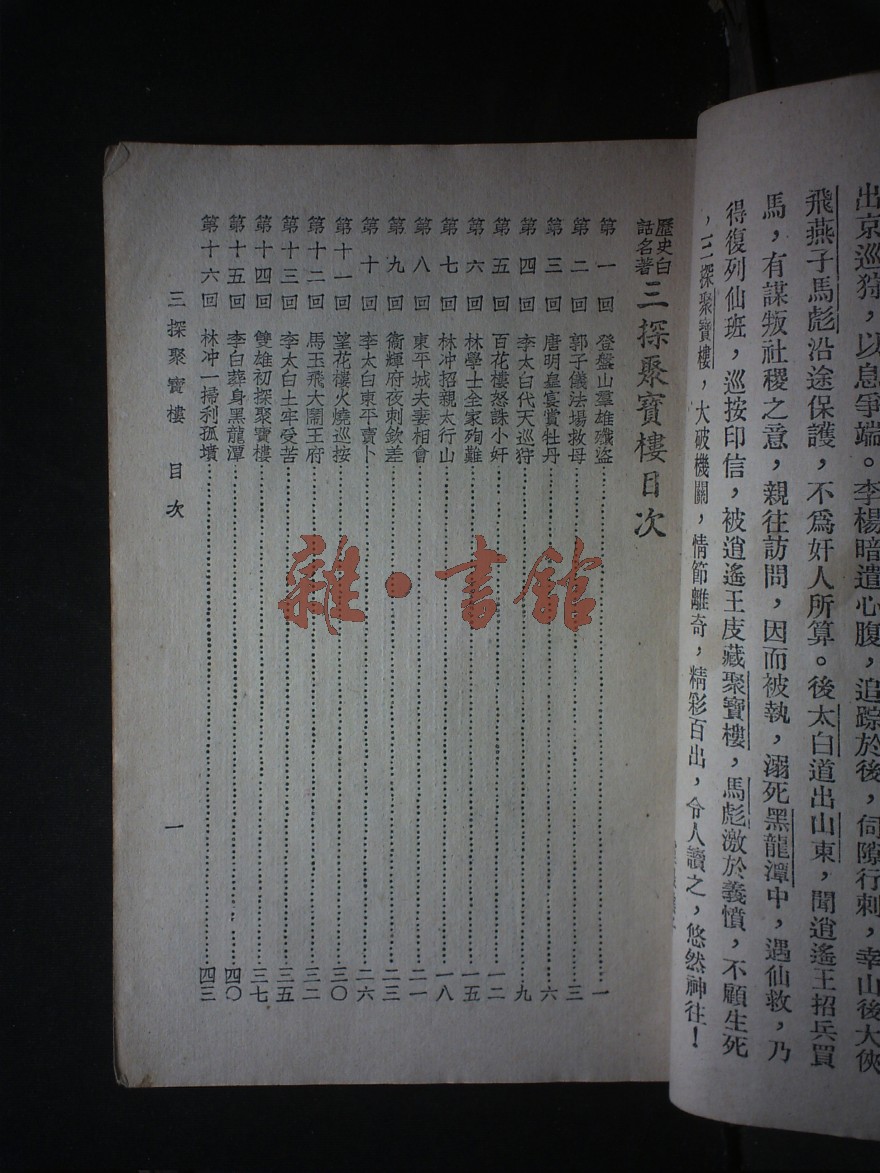 出京巡狩，以息爭端。李楊暗遣心腹，追踪於後，伺隙行刺，幸山後大俠
飛燕子馬彪沿途保護，不爲奸人所算。後太白道出山東，聞逍遙王招兵買
馬，有謀叛社稷之意，親往訪問，因而被執，溺死黑龍潭中，遇仙救，乃
得復列仙班，巡按印信，被逍遙王庋藏聚寶樓，馬彪激於義憤，不顧生死
，三探聚寶樓，大破機關，情節離奇，精彩百出，令人讀之，悠然神往！
歷史白話名著 三探聚寶樓目次
第一回 登盤山羣雄殲盜 一
第二回 郭子儀法場救母 三
第三回 唐明皇宴賞牡丹 六
第四回 李太白代天巡狩 九
第五回 百花樓怒誅小奸 一二
第六回 林學士全家殉難 一五
第七回 林冲招親太行山 一八
第八回 東平城夫妻相會 二一
第九回 衞輝府夜刺欽差 二三
第十回 李太白東平賣卜 二六
第十一回 望花樓火燒巡按 三〇
第十二回 馬玉飛大鬧王府 三二
第十三回 李太白土牢受苦 三五
第十四回 雙雄初探聚寶樓 三七
第十五回 李白葬身黑龍潭 四〇
第十六回 林冲一掃利孤墳 四三
三探聚寶樓 目次
一
雜·書館